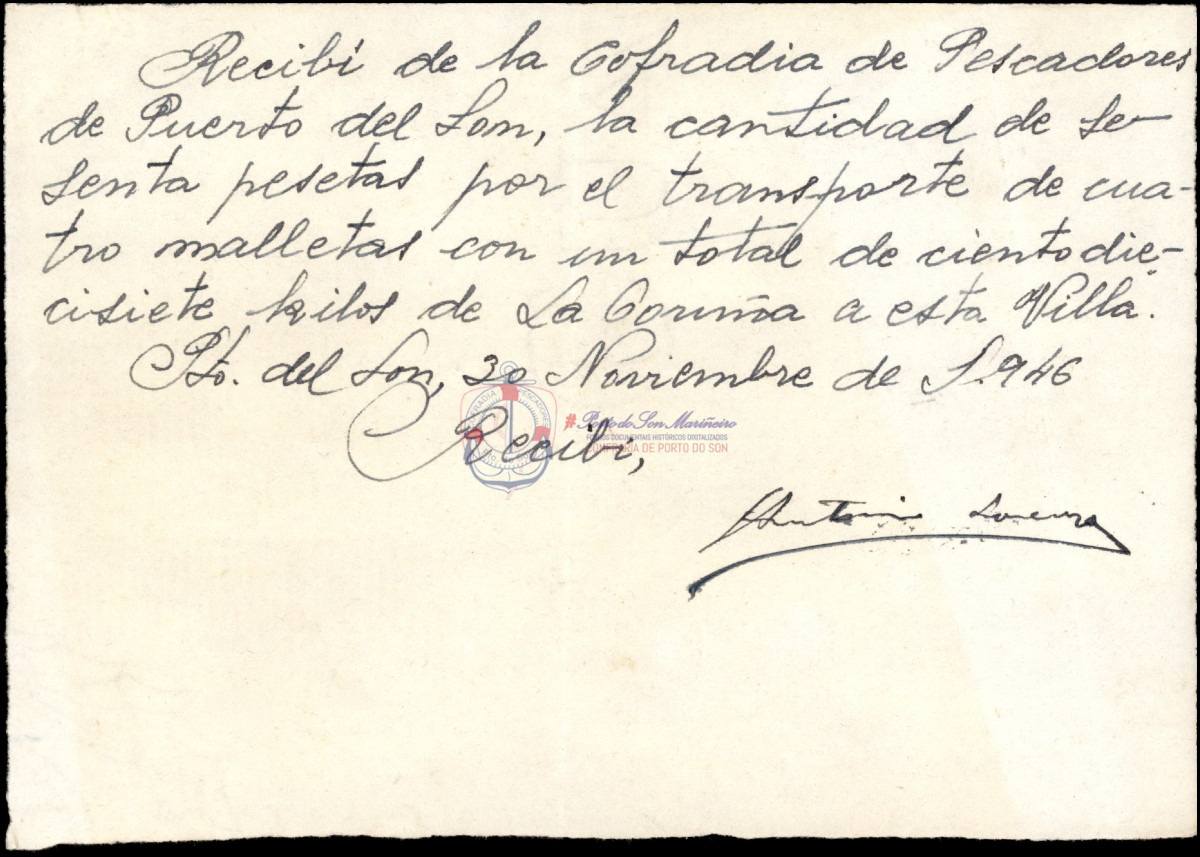 Recibí de la Cofradia de Pescadores
de Puerto del Son, la cantidad de Se-
senta pesetas por el transporte de cua-
tro malletas con un total de ciento die-
cisiete kilos de La Coruña a esta Villa.
Pto. del Son, 30 Noviembre de 1.946
#Porto do Son Mariñeiro
FONDOS DOCUMENTAIS HISTÓRICOS DIXITALIZADOS
CONFRARÍA DE PORTO DO SON
Recibí,
Antonio